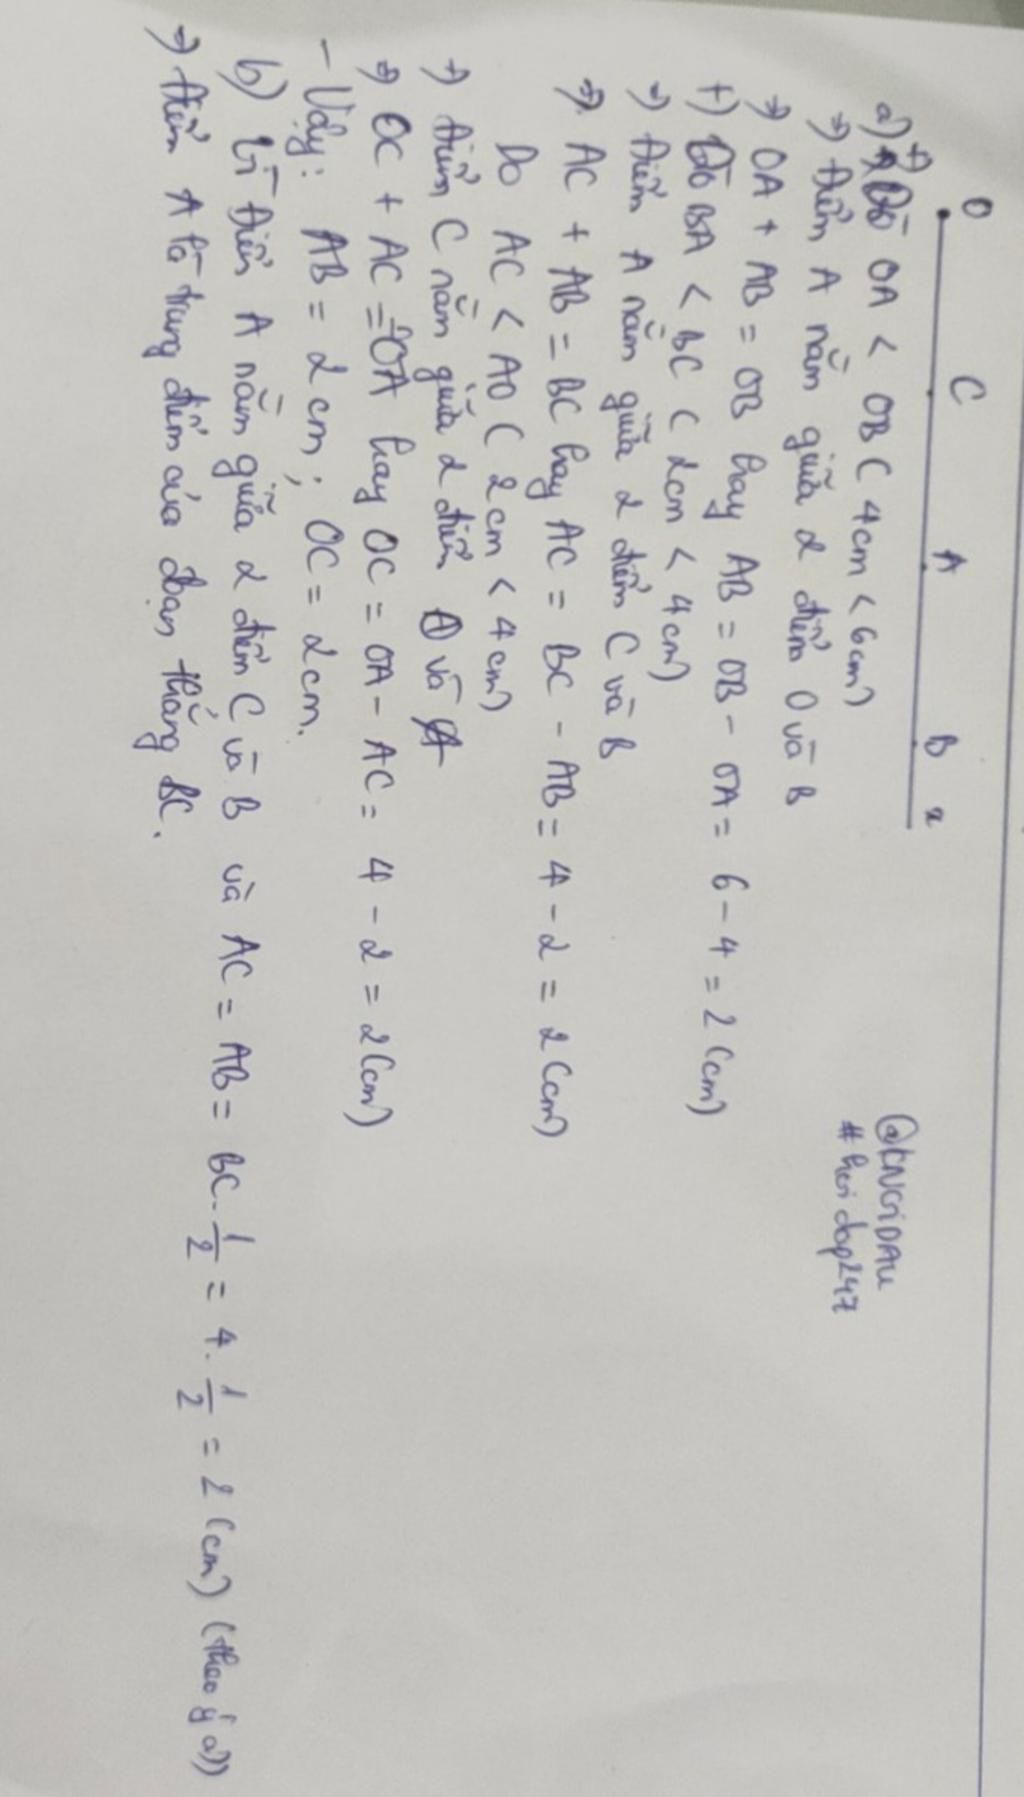 O C A B x
@KNGIDAU
#hoidap247
a) +) Do OA < OB ( 4cm < 6cm)
=> Điểm A nằm giữa 2 điểm O và B
=> OA + AB = OB hay AB = OB - OA = 6 - 4 = 2 (cm)
+) Do BA < BC ( 2cm < 4cm)
=> Điểm A nằm giữa 2 điểm C và B
=> AC + AB = BC hay AC = BC - AB = 4 - 2 = 2 (cm)
Do AC < AO ( 2cm < 4cm)
=> Điểm C nằm giữa 2 điểm O và A
=> OC + AC = OA hay OC = OA - AC = 4 - 2 = 2 (cm)
- Vậy: AB = 2cm; OC = 2cm.
b) Vì điểm A nằm giữa 2 điểm C và B và AC = AB = BC . 1/2 = 4 . 1/2 = 2 (cm) (theo ý a))
=> Điểm A là trung điểm của đoạn thẳng BC.